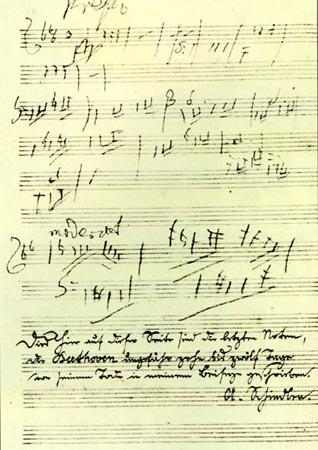 Presto
moderat
Diese hier auf dieser Seite sind die letzten Noten,
die Beethoven ungefähr zehn bis zwölf Tage
vor seinem Tode in meinem Beiseyn geschrieben.
A. Schindler.